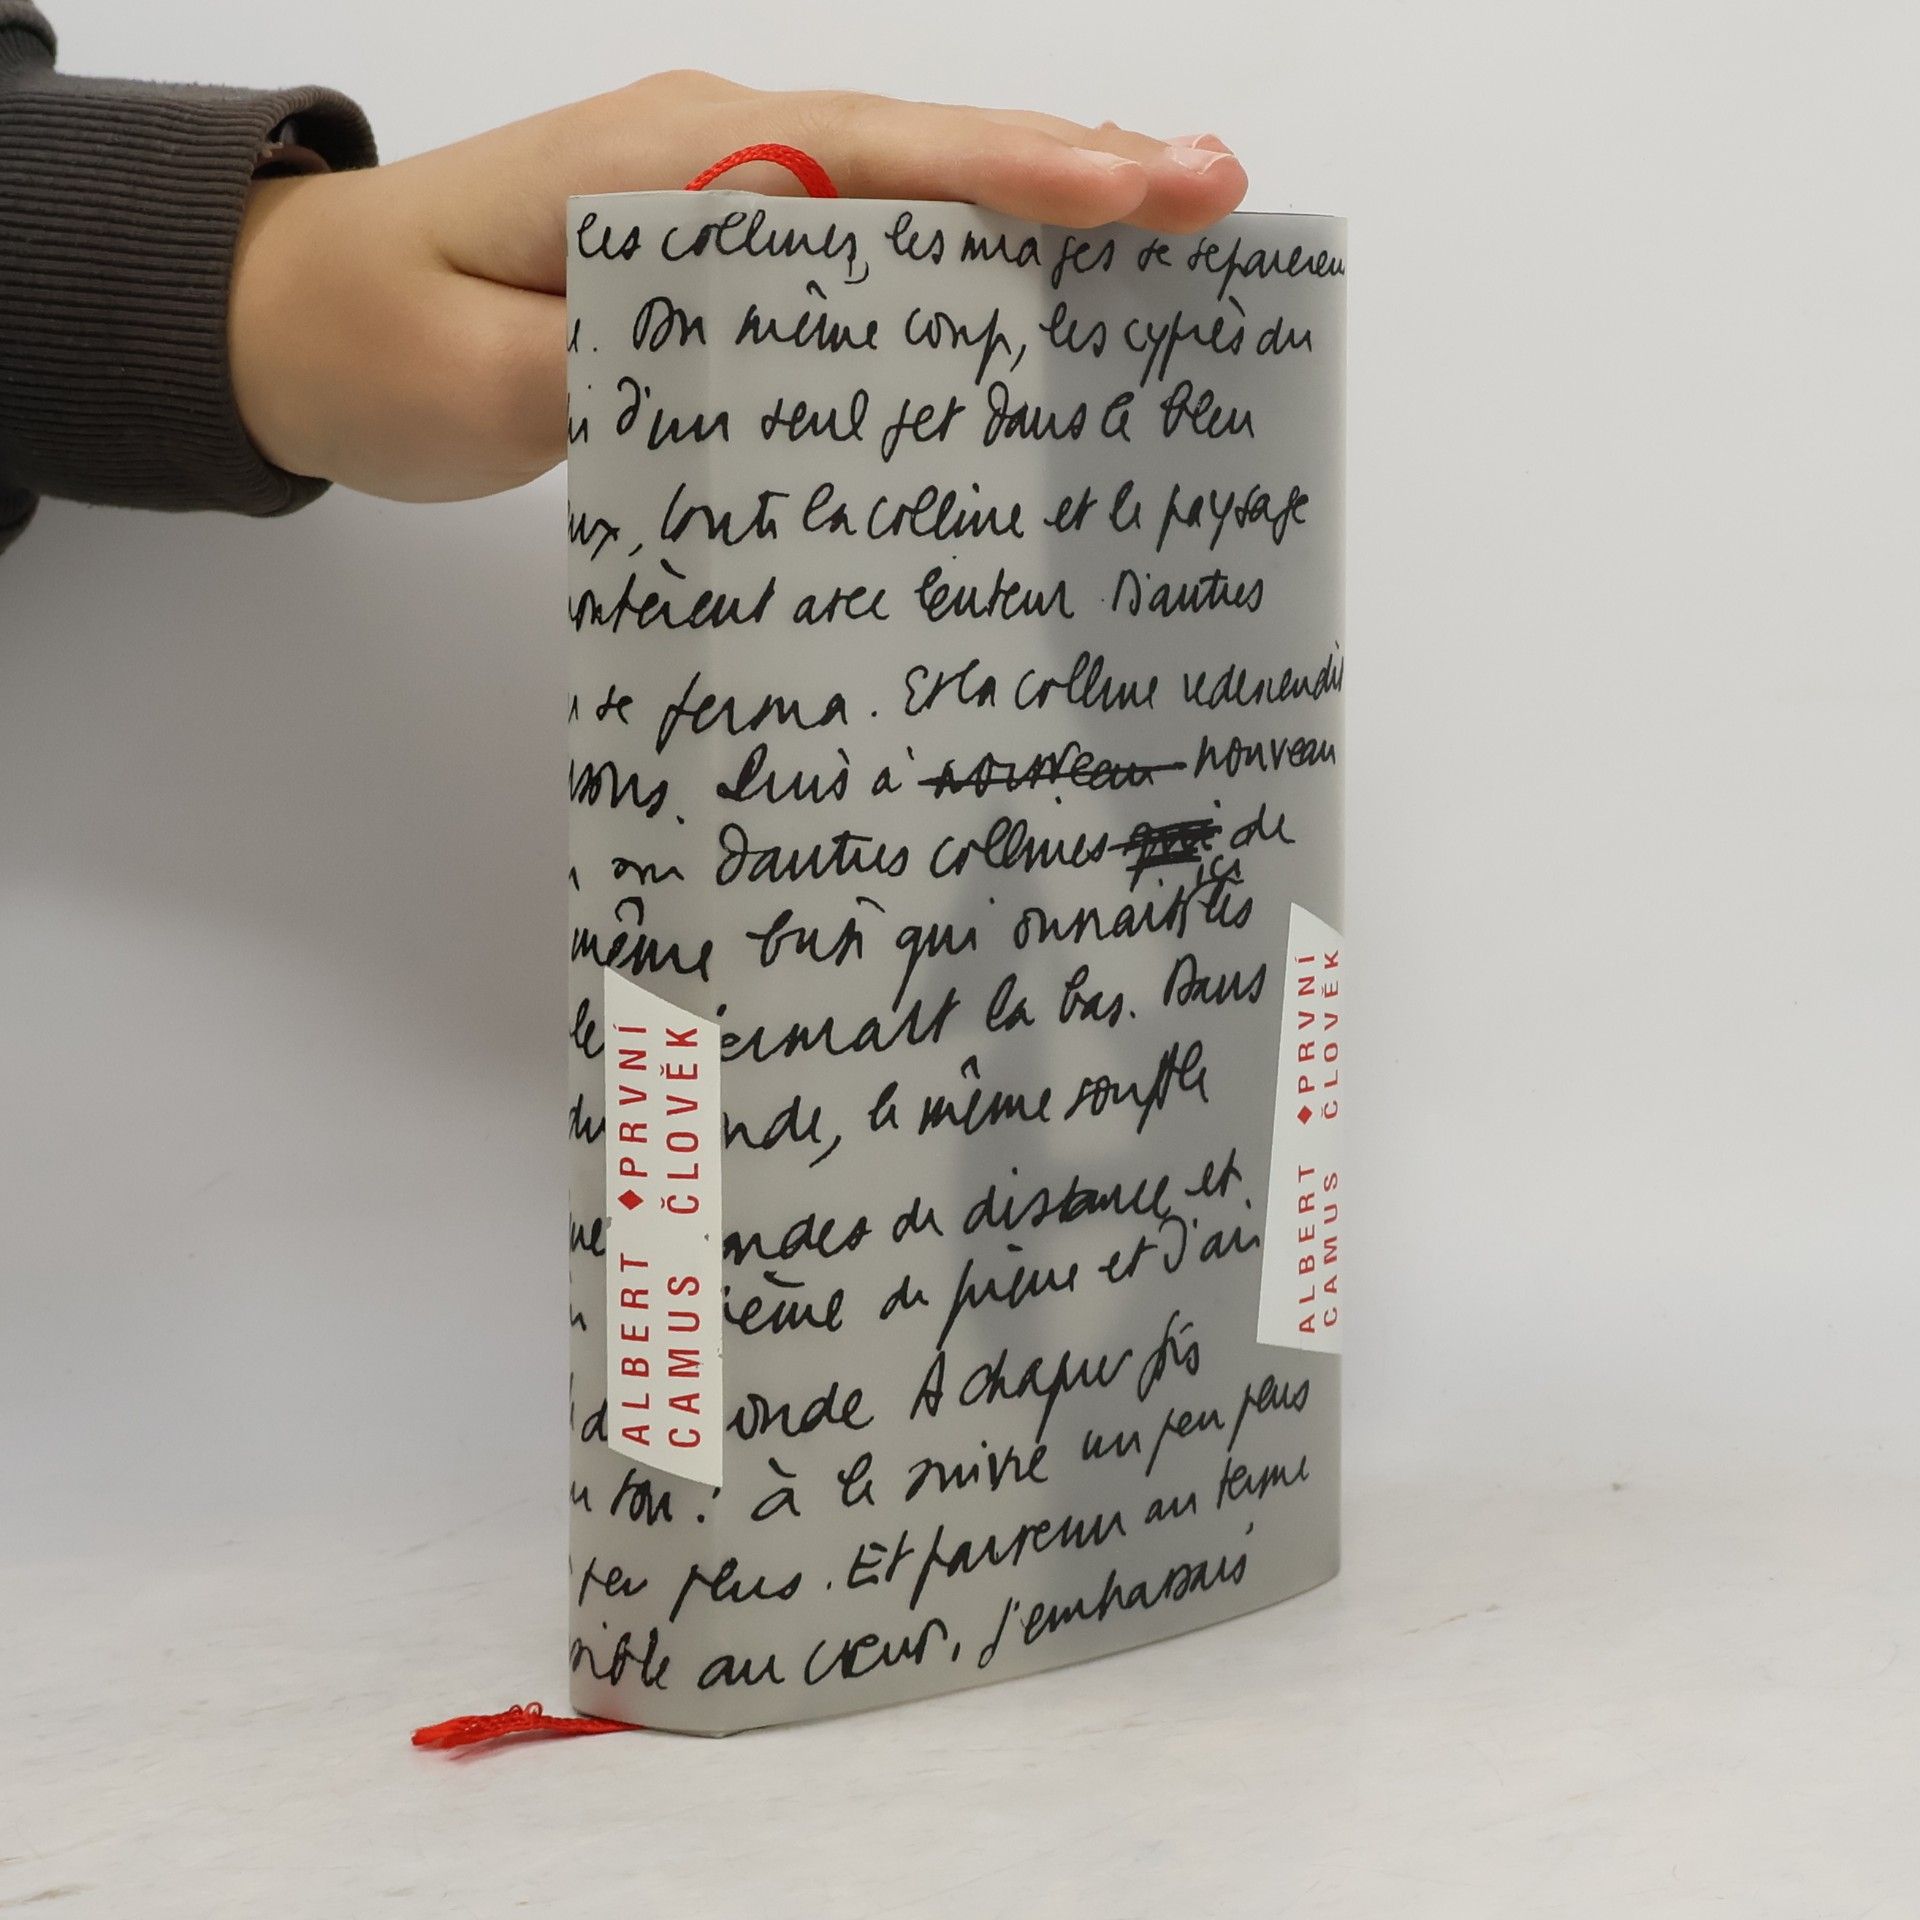 les collines, les nuages se separeren
. Du même coup, les cyprès du
d'un seul jet dans le bleu
ux, toute la colline et le paysage
ontèrent avec lenteur D'autres
se ferma. Et la colline redescendit
sons. Puis à nouveau nouveau
ou d'autres collines de
ici
même buste qui connaissait les
le ermait la bas. Dans
du nde, le même souffle
ue andes de distance et
ième de pierre et d'air
d onde A chaque fois
son : à le suivre un peu plus
peu plus. Et parvenu au terme
sible au cœur, j'embrassais
ALBERT ♦PRVNÍ
CAMUS ČLOVĚK
ALBERT ♦PRVNÍ
CAMUS ČLOVĚK